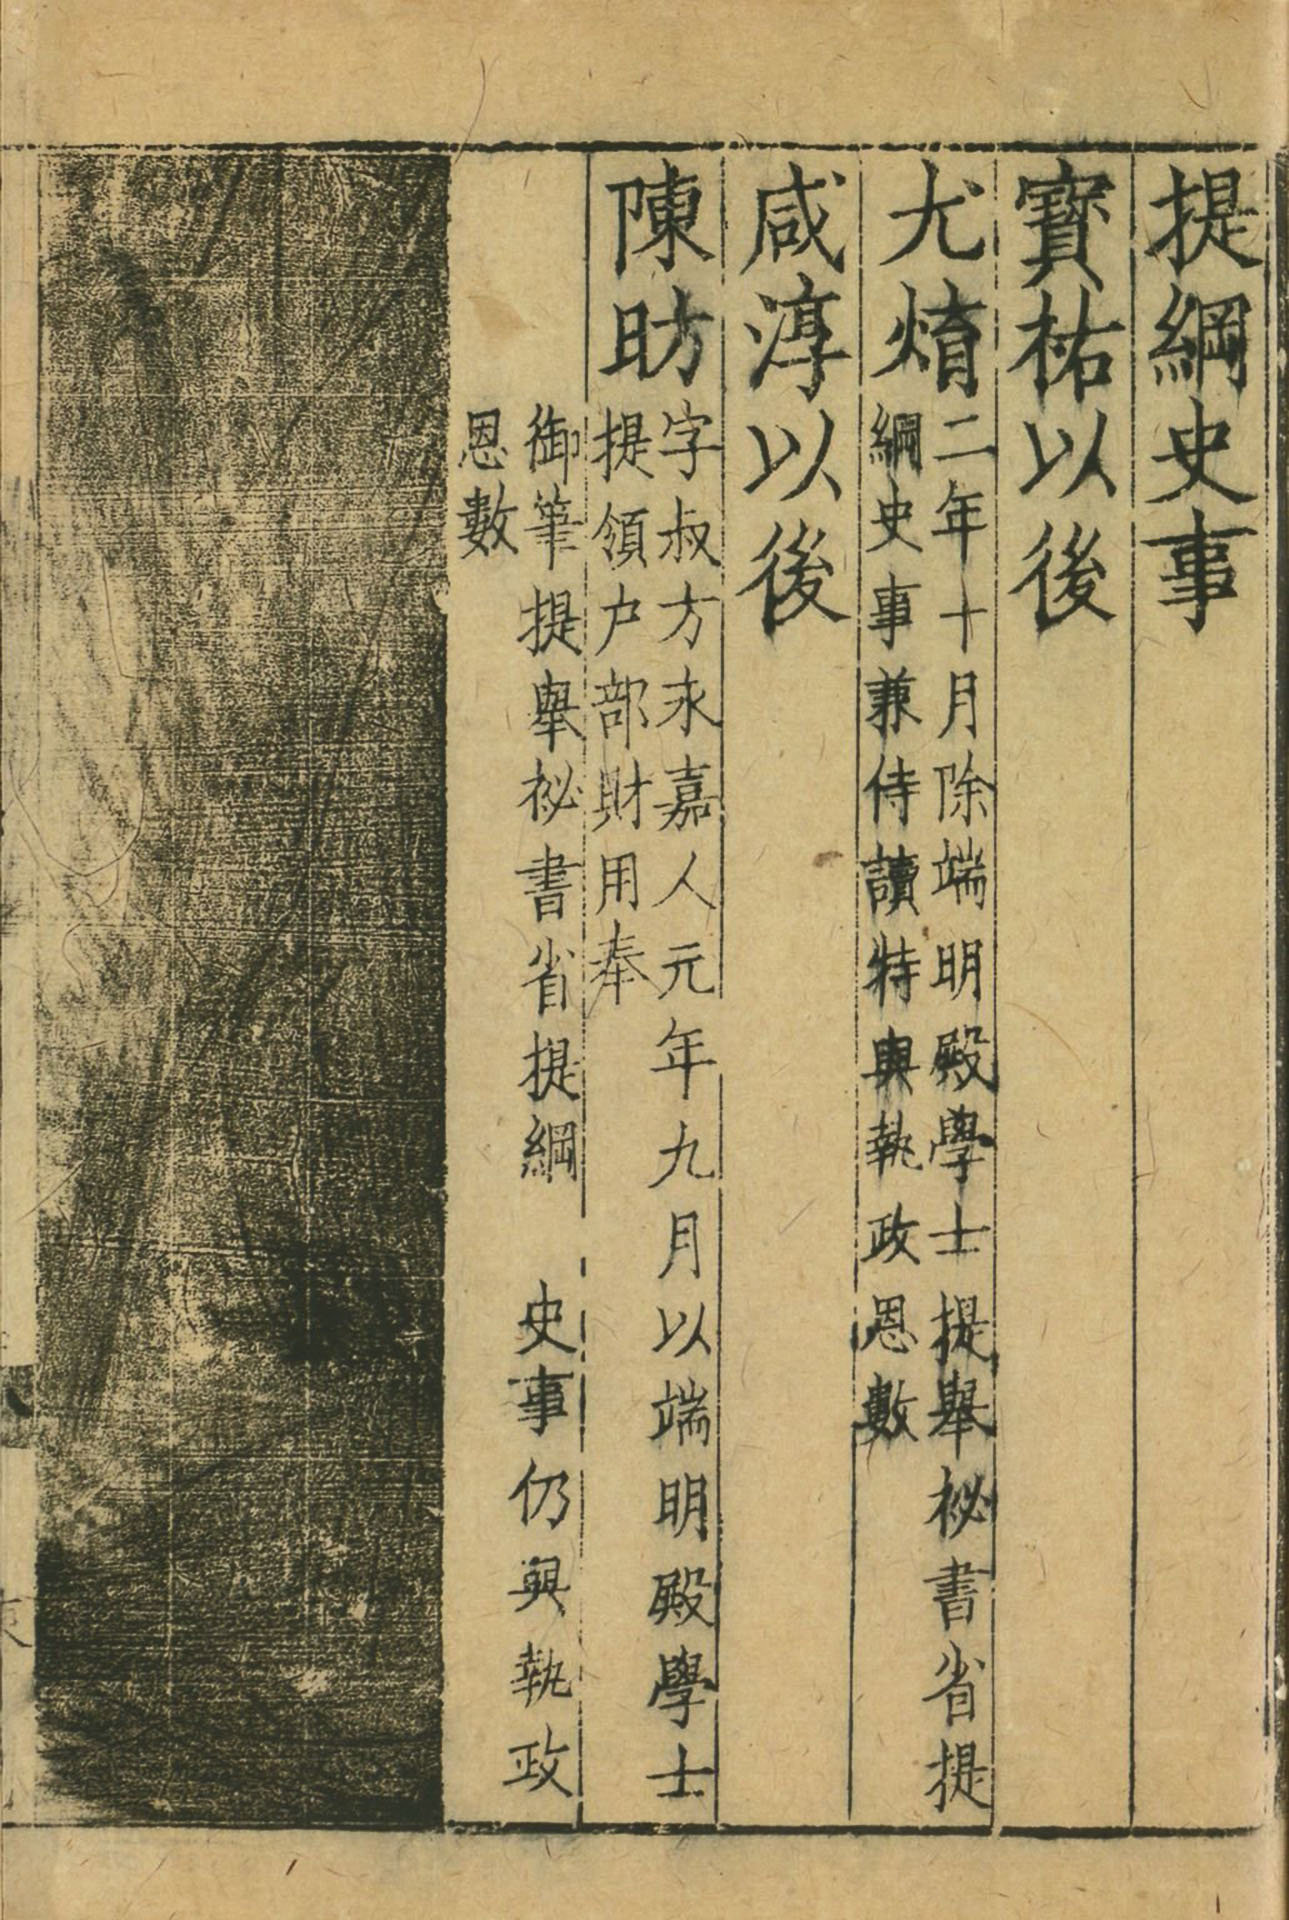 提綱史事
寶祐以後
尤焴二年十月除端明殿學士提舉祕書省提
綱史事兼侍讀特與執政恩數
咸淳以後
陳昉字叔方永嘉人元年九月以端明殿學士
提領户部財用奉
御筆提舉祕書省提綱　史事仍與執政
恩數